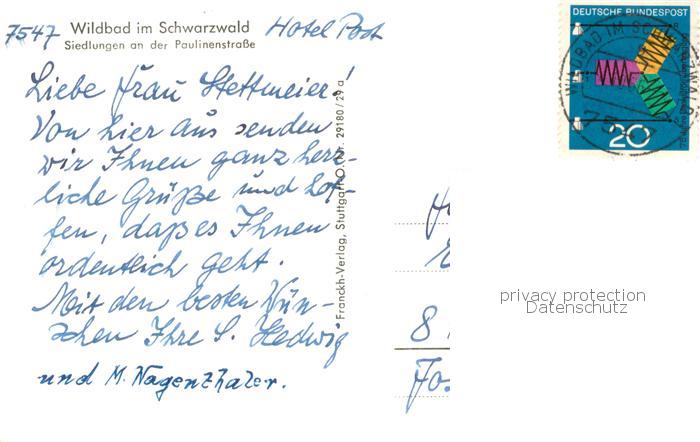 7547 Wildbad im Schwarzwald Hotel Post
Siedlungen an der Paulinenstraße
Liebe Frau Stettmeier!
Von hier aus senden
wir Ihnen ganz herz-
liche Grüße und hof-
fen, daß es Ihnen
ordentlich geht.
Mit den besten Wün-
schen Ihre S. Hedwig
und M. Nagenthaler.
Franckh-Verlag, Stuttgart-O. (Nr. 29180/29 a
DEUTSCHE BUNDESPOST
20
WILDBAD IM SCHW
8
privacy protection
Datenschutz